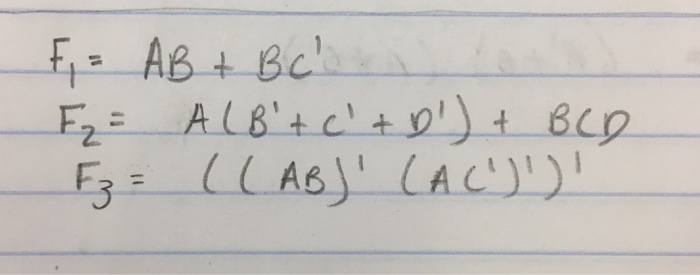 F₁ = AB + BC'
F₂ = A(B' + C' + D') + BCD
F₃ = ((AB)' (AC')')'